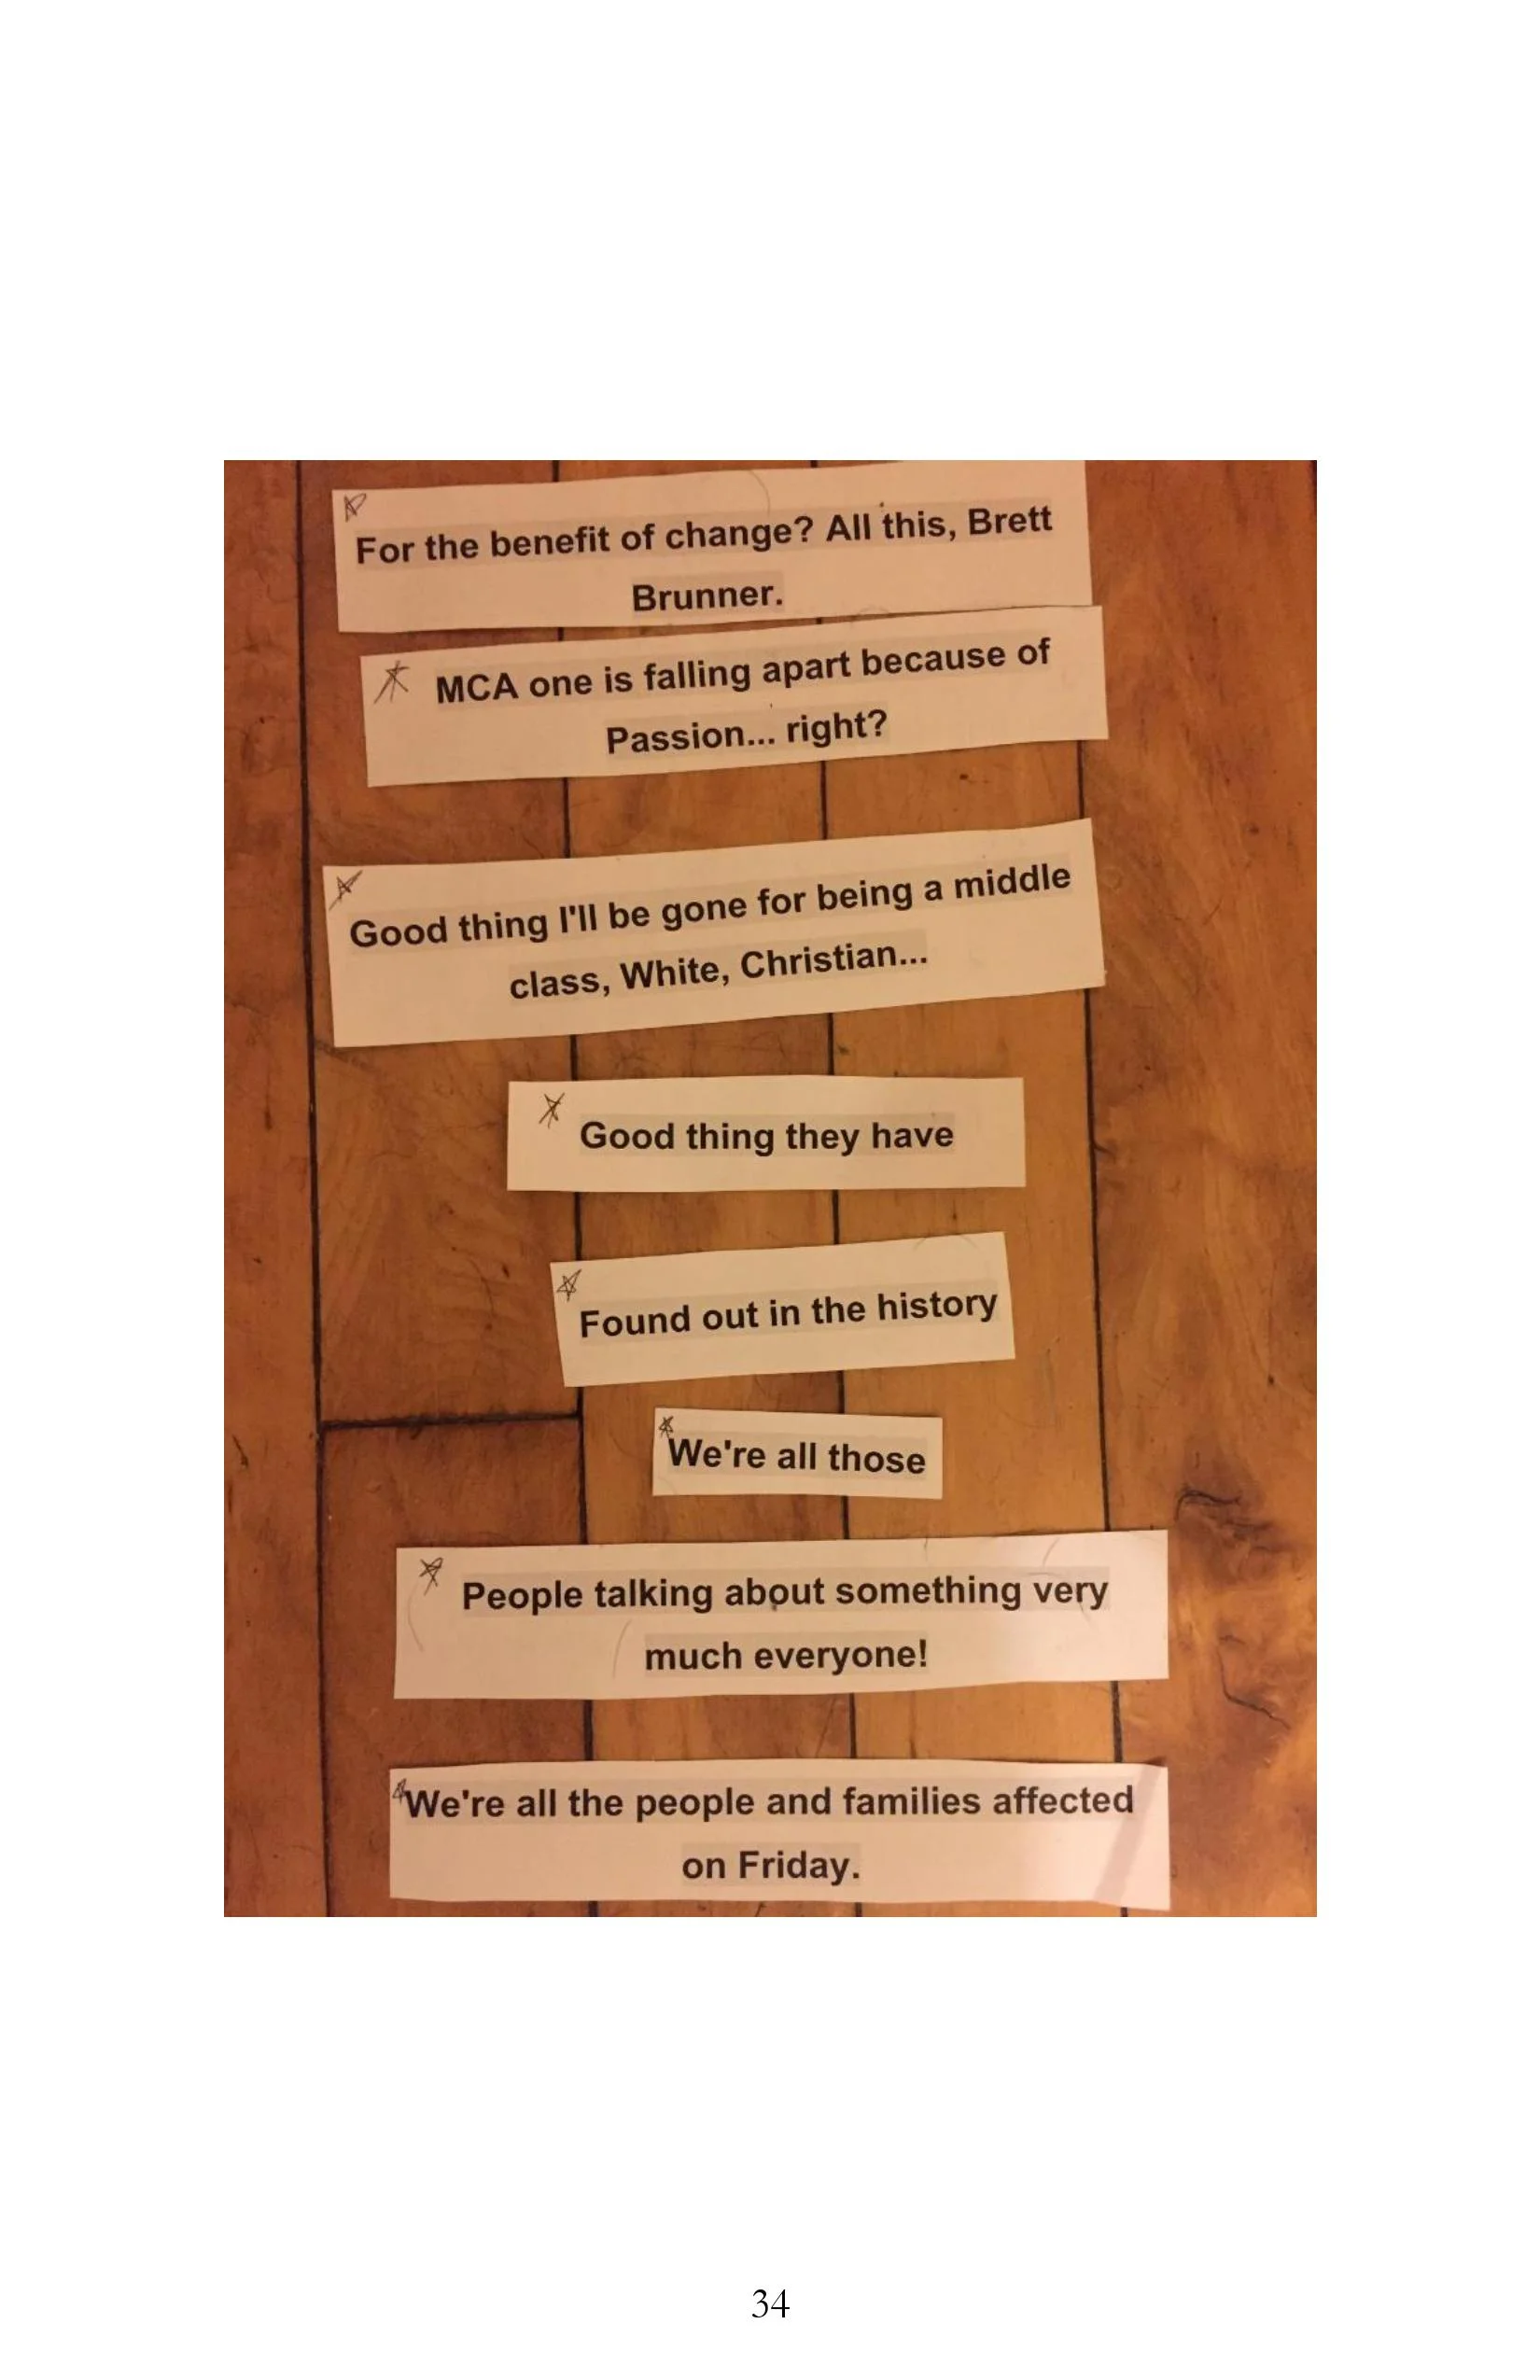 For the benefit of change? All this, Brett
Brunner.
MCA one is falling apart because of
Passion... right?
Good thing I'll be gone for being a middle
class, White, Christian...
Good thing they have
Found out in the history
We're all those
People talking about something very
much everyone!
We're all the people and families affected
on Friday.
34